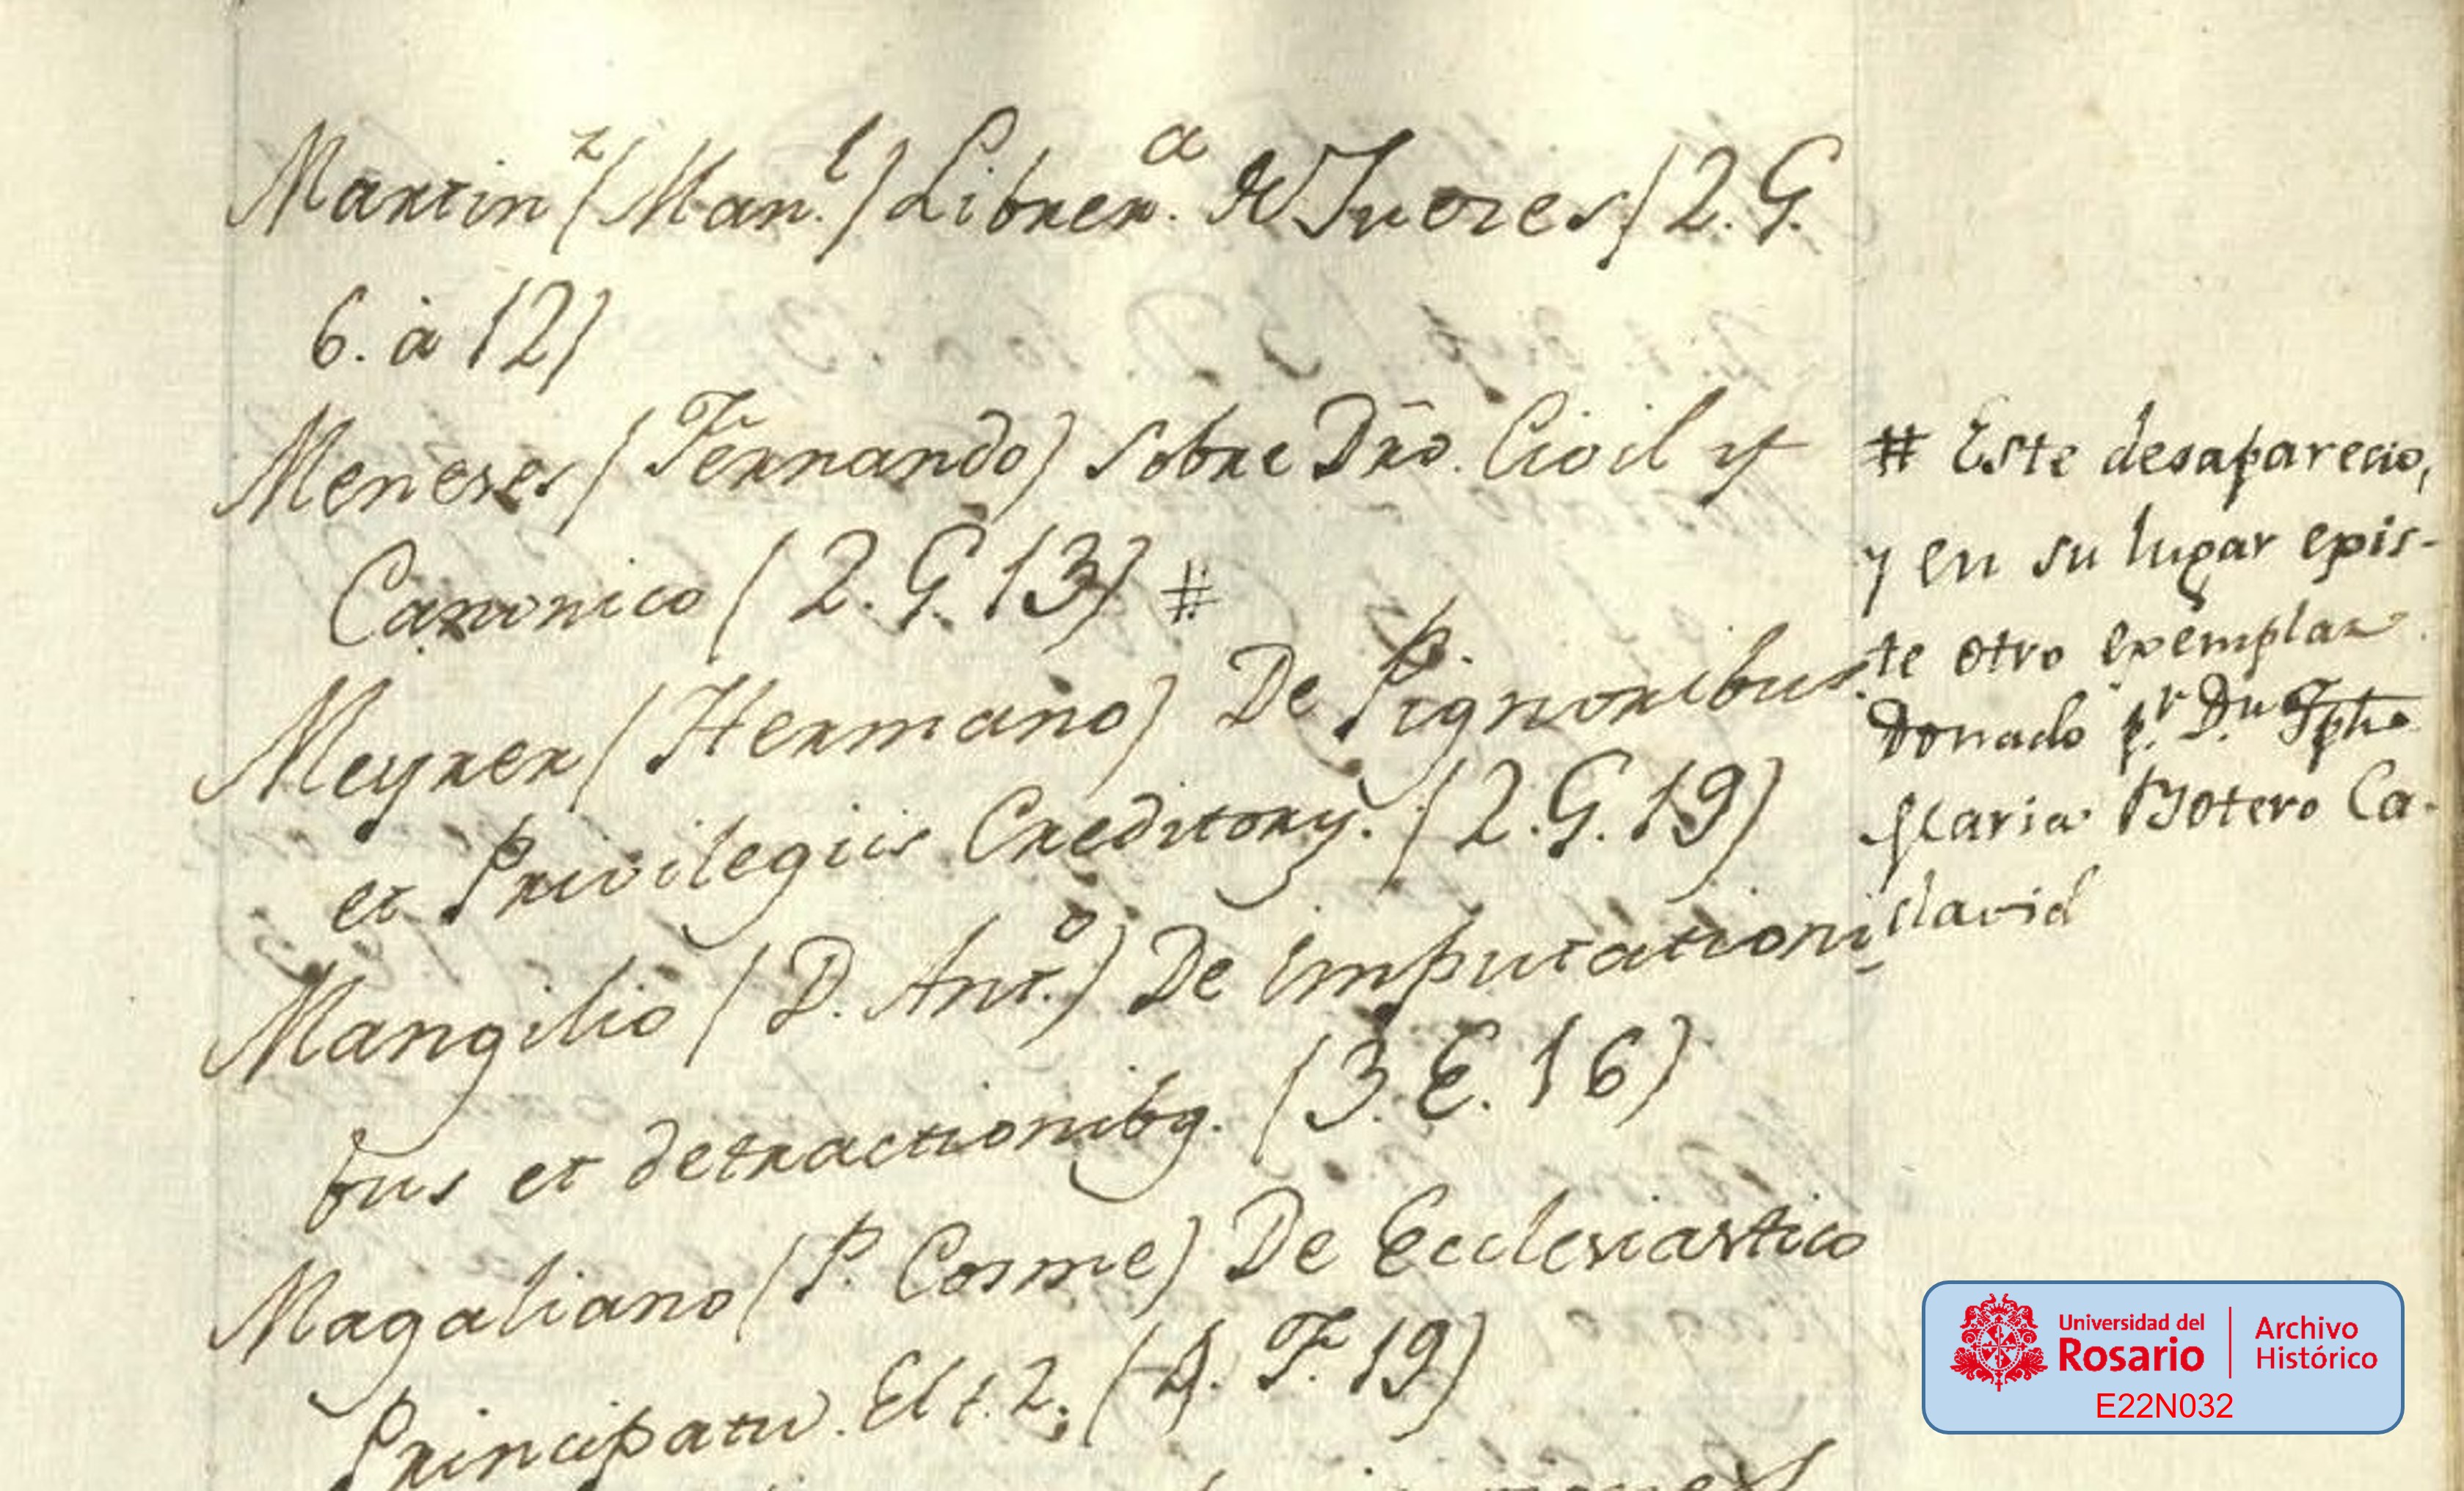 Martin.z (Man.l) Librer.a de Jueces (2. G.
6. à 12)
Meneses (Fernando) sobre Dr̃o. Civil y
Canonico (2. G. 13) #
Meyrer (Hermano) De Pignoribus
et Privilegiis Creditory. (2. G. 19)
Mangilio (D. Ant.o) De imputationi
bus et detractionibq. (3. E. 16)
Magaliano (P. Cosme) De Ecclesiastico
Principatu. El t. 2. (4. F. 19)
# Este desaparecio,
y en su lugar epis-
te otro exemplar
Donado p.r D.n Jph
Maria Botero Ca-
david
Universidad del
Rosario
Archivo
Histórico
E22N032